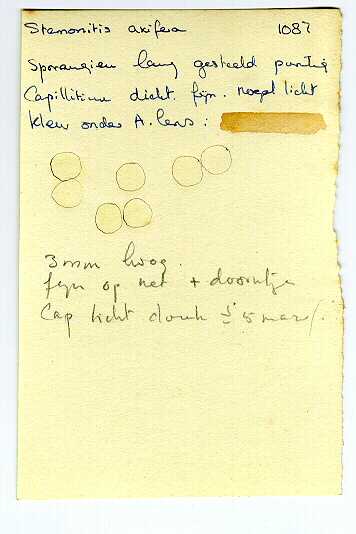 Stemonitis axifera 1087
Sporangien lang gesteeld puntig
Capillitium dicht. fijn. licht
kleur onder A. lens:
3 mm hoog.
fijn op net + doorntje
Cap licht donk